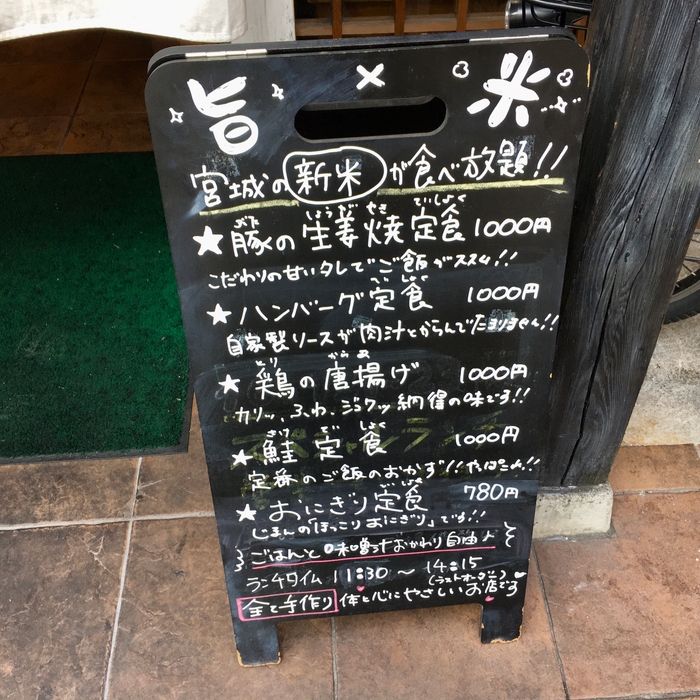 旨 × 米
宮城の新米が食べ放題!!
★豚の生姜焼定食 1000円
こだわりの甘いタレでご飯がススム!!
★ハンバーグ定食 1000円
自家製ソースが肉汁とからんでたまりません!!
★鶏の唐揚げ 1000円
カリッ、ふわ、ジュワッ納得の味です!!
★鮭定食 1000円
定番のご飯のおかず!!やっぱこれ!!
★おにぎり定食 780円
じまんの「ほっこりおにぎり」です!!
ごはんと味噌汁おかわり自由♪
ランチタイム 11:30～14:15
(ラストオーダー)
全て手作り 体と心にやさしいお店です